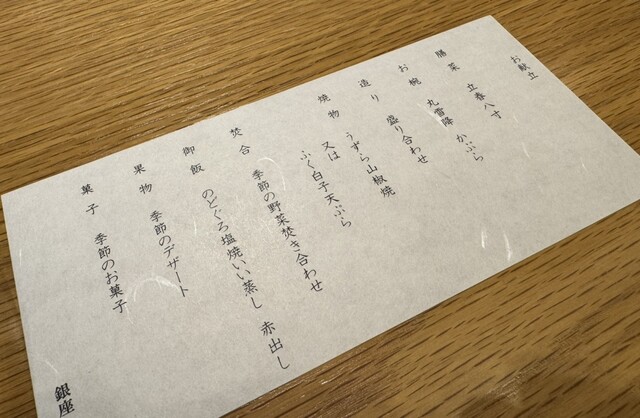 お献立
膳菜 立春八寸
お椀 丸雪降 かぶら
造り 盛り合わせ
焼物 うずら山椒焼
又は
ふく白子天ぷら
焚合 季節の野菜焚き合わせ
御飯 のどぐろ塩焼いい蒸し 赤出し
果物 季節のデザート
菓子 季節のお菓子
銀座